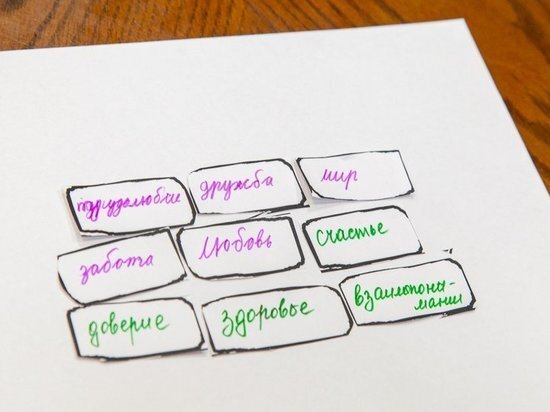 трудолюбие
дружба
мир
забота
Любовь
счастье
доверие
здоровье
взаимопони-
мании